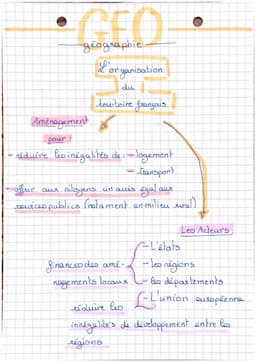 GEO
géographie
L'organisation
du
territoire français
Aménagement
pour :
- réduire les inégalités de : - logement
- transport
- offrir aux citoyens un accès égal aux
services publics (notament en milieu rural)
Les Acteurs :
- L'états
financer des amé- - les régions
nagements locaux - les départements
- L'union européenne
réduire les
innégalités de développement entre les
régions